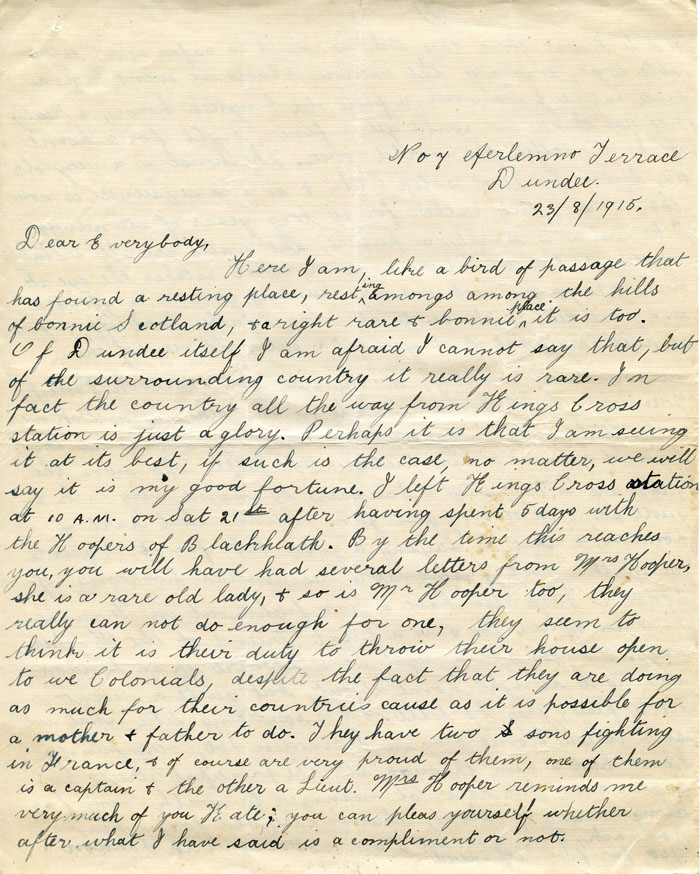 No 7 Aerlemno Terrace
Dundee.
23/8/1915.
Dear Everybody,
Here I am, like a bird of passage that
has found a resting place, resting amongs among the hills
of bonnie Scotland, & a right rare & bonnie place it is too.
Of Dundee itself I am afraid I cannot say that, but
of the surrounding country it really is rare. In
fact the country all the way from Kings Cross
station is just a glory. Perhaps it is that I am seeing
it at its best, if such is the case, no matter, we will
say it is my good fortune. I left Kings Cross station
at 10 A.M. on Sat 21st after having spent 5 days with
the Hoopers of Blackheath. By the time this reaches
you, you will have had several letters from Mrs Hooper,
she is a rare old lady, & so is Mr Hooper too, they
really can not do enough for one, they seem to
think it is their duty to throw their house open
to we Colonials, despite the fact that they are doing
as much for their countries cause as it is possible for
a mother & father to do. They have two sons fighting
in France, & of course are very proud of them, one of them
is a captain & the other a Lieut. Mrs Hooper reminds me
very much of you Kate; you can pleas yourself whether
after what I have said is a compliment or not.